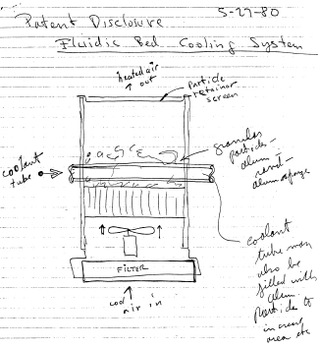 Patent Disclosure 5-27-80
Fluidic Bed Cooling System
heated air
out
particle
retainor
screen
granular
particles -
alum -
sand -
coolant
tube
coolant
tube may
also be
filled with
alum
particle to
increase
area etc
FILTER
cool
air in